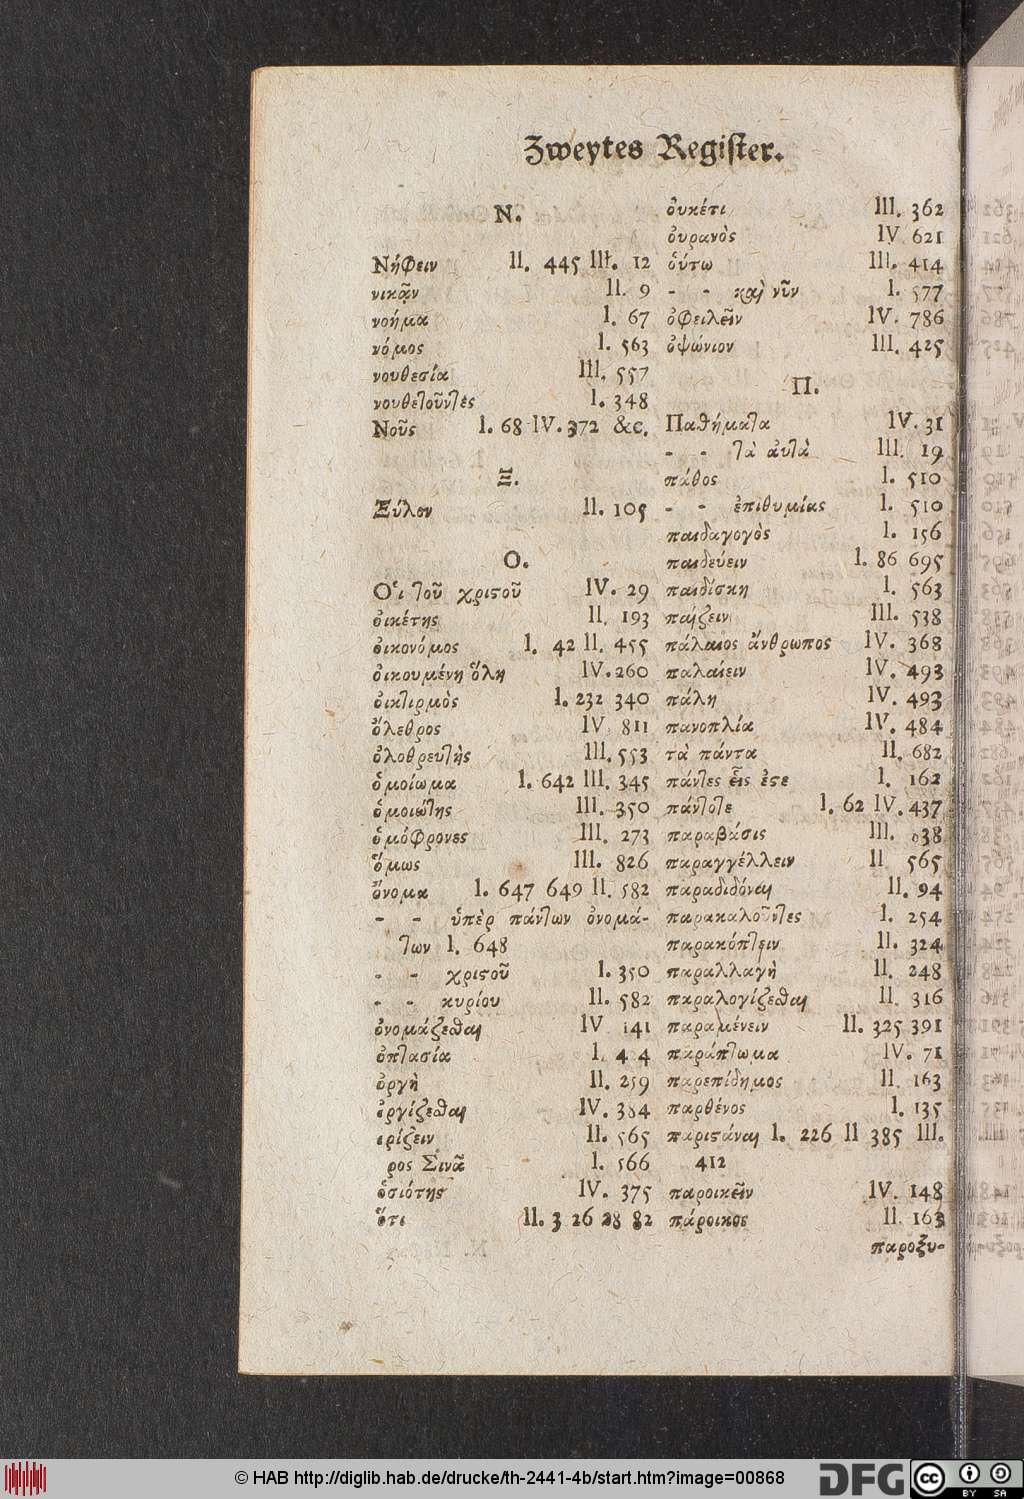 Zweytes Regiſter.
N.
Νήφειν II. 445 III. 12
νικᾷν II. 9
νοήμα I. 67
νόμος I. 563
νουθεσία III. 557
νουθετοῦντες I. 348
Νοῦς I. 68 IV. 372 &c.
Ξ.
Ξύλον II. 105
O.
Οἱ τοῦ χριστοῦ IV. 29
ὀικέτης II. 193
ὀικονόμος I. 42 II. 455
ὀικουμένη ὅλη IV. 260
ὀικτιρμὸς I. 232 340
ὄλεθρος IV 811
ὀλοθρευτὴς III. 553
ὁμοίωμα I. 642 III. 345
ὁμοιώτης III. 350
ὁμόφρονες III. 273
ὅμως III. 826
ὄνομα I. 647 649 II. 582
- - ὑπὲρ πάντων ὀνομά-
των I. 648
- - χριστοῦ I. 350
- - κυρίου II. 582
ὀνομάζεσθαι IV 141
ὀπτασία I. 4 4
ὀργὴ II. 259
ὀργίζεσθαι IV. 384
ερίζειν II. 565
ρος Σινᾶ I. 566
ὁσιότης IV. 375
ὅτι II. 3 26 28 82
ὀυκέτι III. 362
ὀυρανὸς IV 621
ὁύτω III. 414
- - καὶ νῦν I. 577
ὀφειλεῖν IV. 786
ὀψώνιον III. 425
Π.
Παθήματα IV. 31
- - τὰ ἀυτὰ III. 19
πάθος I. 510
- - ἐπιθυμίας I. 510
παιδαγογὸς I. 156
παιδεύειν I. 86 695
παιδίσκη I. 563
παίζειν III. 538
πάλαιος ἄνθρωπος IV. 368
παλαίειν IV. 493
πάλη IV. 493
πανοπλία IV. 484
τὰ πάντα II. 682
πάντες εἷς ἐστε I. 162
πάντοτε I. 62 IV. 437
παραβάσις III. 38
παραγγέλλειν II 565
παραδιδόναι II. 94
παρακαλοῦντες I. 254
παρακόπτειν II. 324
παραλλαγὴ II. 248
παραλογίζεσθαι II. 316
παραμένειν II. 325 391
παράπτωμα IV. 71
παρεπίδημος II. 163
παρθένος I. 135
παριστάναι I. 226 II 385 III.
412
παροικεῖν IV. 148
πάροικος II. 163
παροξυ-
© HAB http://diglib.hab.de/drucke/th-2441-4b/start.htm?image=00868
DFG cc BY SA